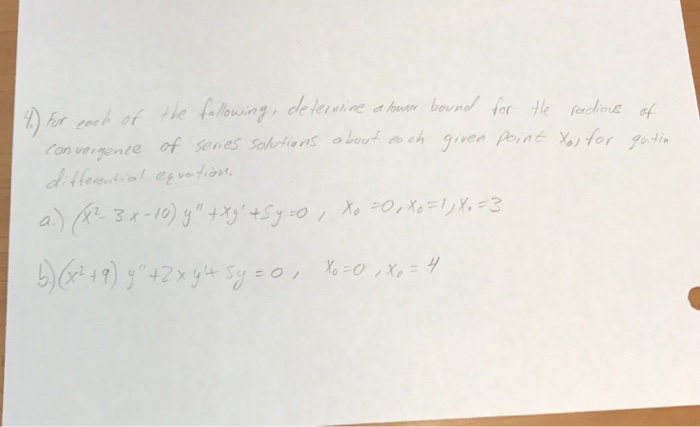 4.) For each of the following, determine a lower bound for the radious of
convergence of series solutions about each given point X₀, for
differential equation.
a.) (x²- 3x-10) y" +xy' +5y=0, X₀ =0, X₀=1, X₀=3
b.) (x²+9) y" +2xy'+ 5y = 0, X₀=0, X₀ = 4